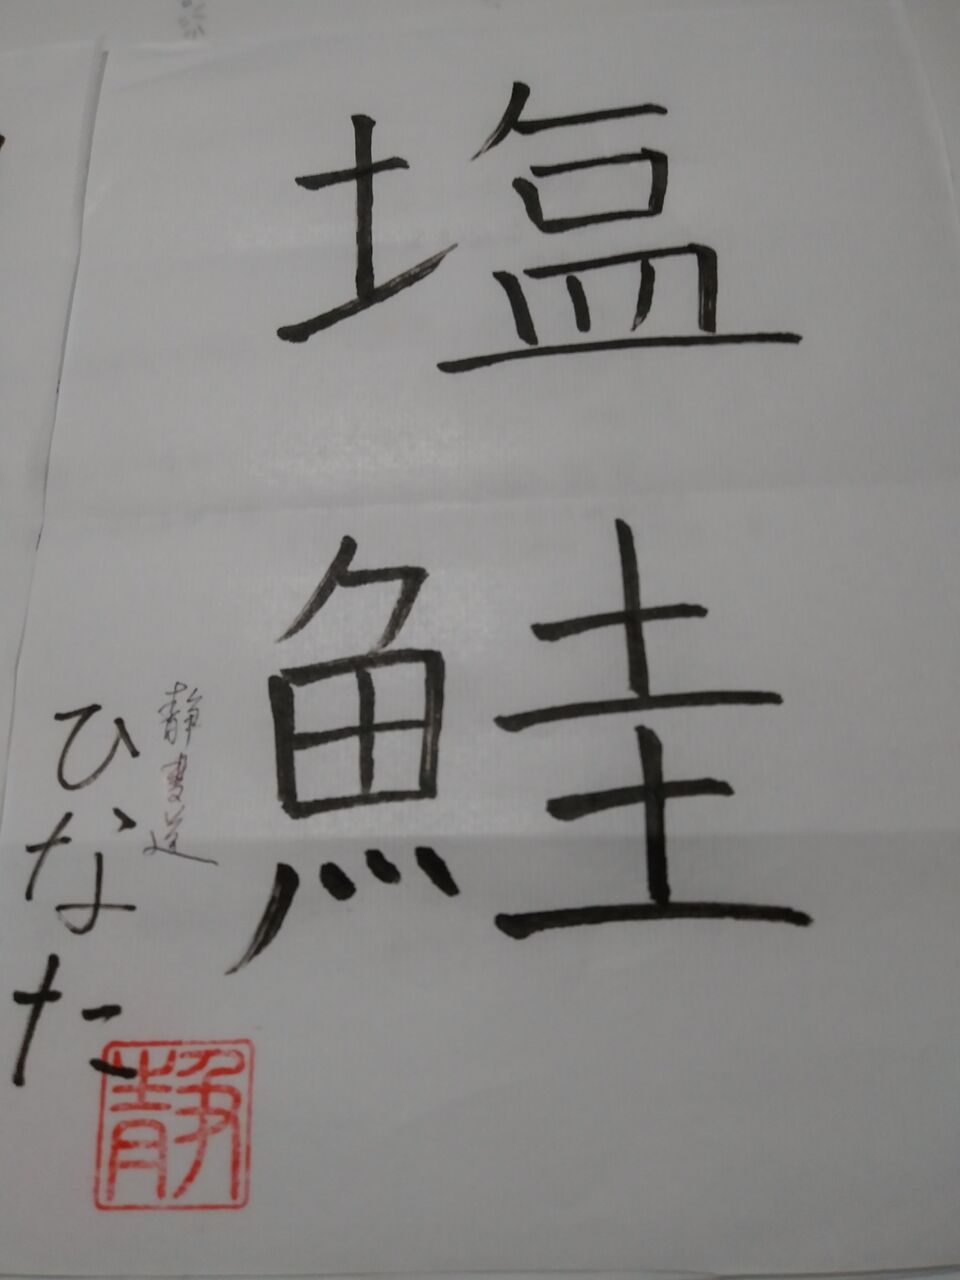 塩
鮭
静書道
ひなた
静